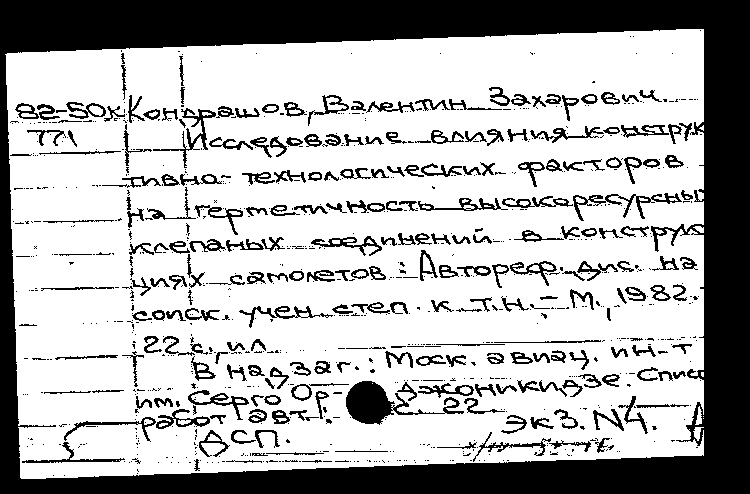 82-50к Кондрашов, Валентин Захарович.
771 Исследование влияния конструк
тивно-технологических факторов
на герметичность высокоресурсны
клепаных соединений в конструк
циях самолетов: Автореф. дис. на
соиск. учен. степ. к.т.н. - М., 1982. -
22 с., ил
В надзаг.: Моск. авиац. ин-т
им. Серго Орджоникидзе. Спис
работ авт.: с. 22
Экз. N4.
ДСП.